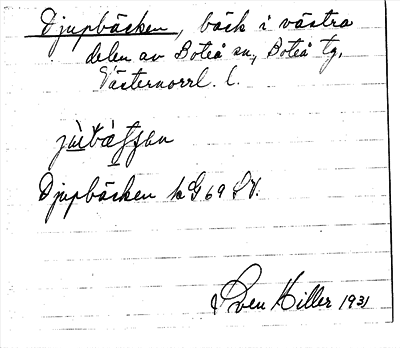 Djupbäcken, bäck i västra
delen av Boteå sn, Boteå tg,
Västernorrl. l.
Djupbäcken kG69SV.
Sven Hiller 1931